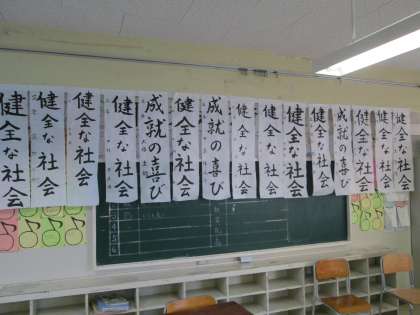 健全な社会
健全な社会
健全な社会
健全な社会
成就の喜び
健全な社会
成就の喜び
健全な社会
健全な社会
健全な社会
健全な社会
成就の喜び
健全な社会
健全な社会
健全な社会